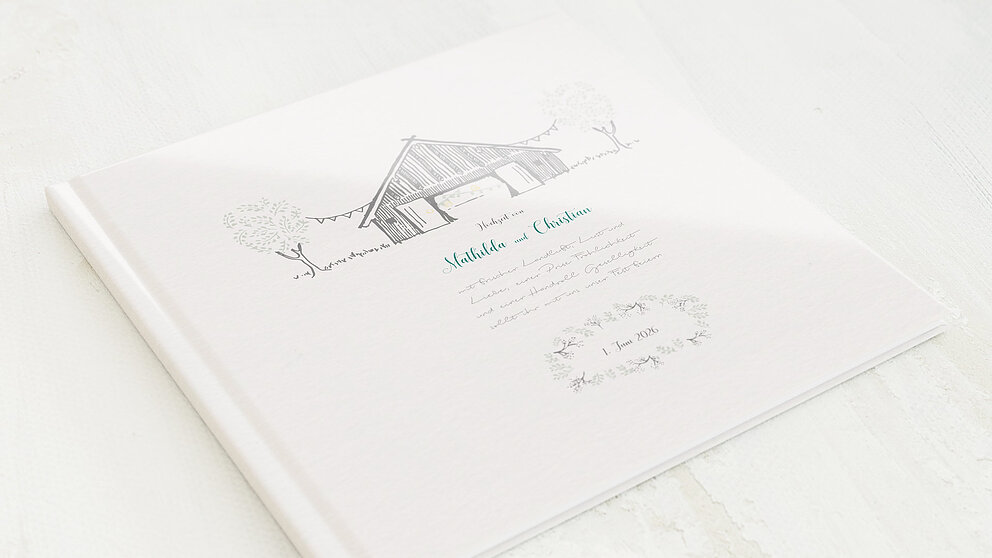 Hochzeit von
Mathilda und Christian
mit frischer Landluft, Lust und
Liebe, einer Prise Fröhlichkeit
und einer Handvoll Geselligkeit
sollt ihr mit uns unser Fest feiern
1. Juni 2026